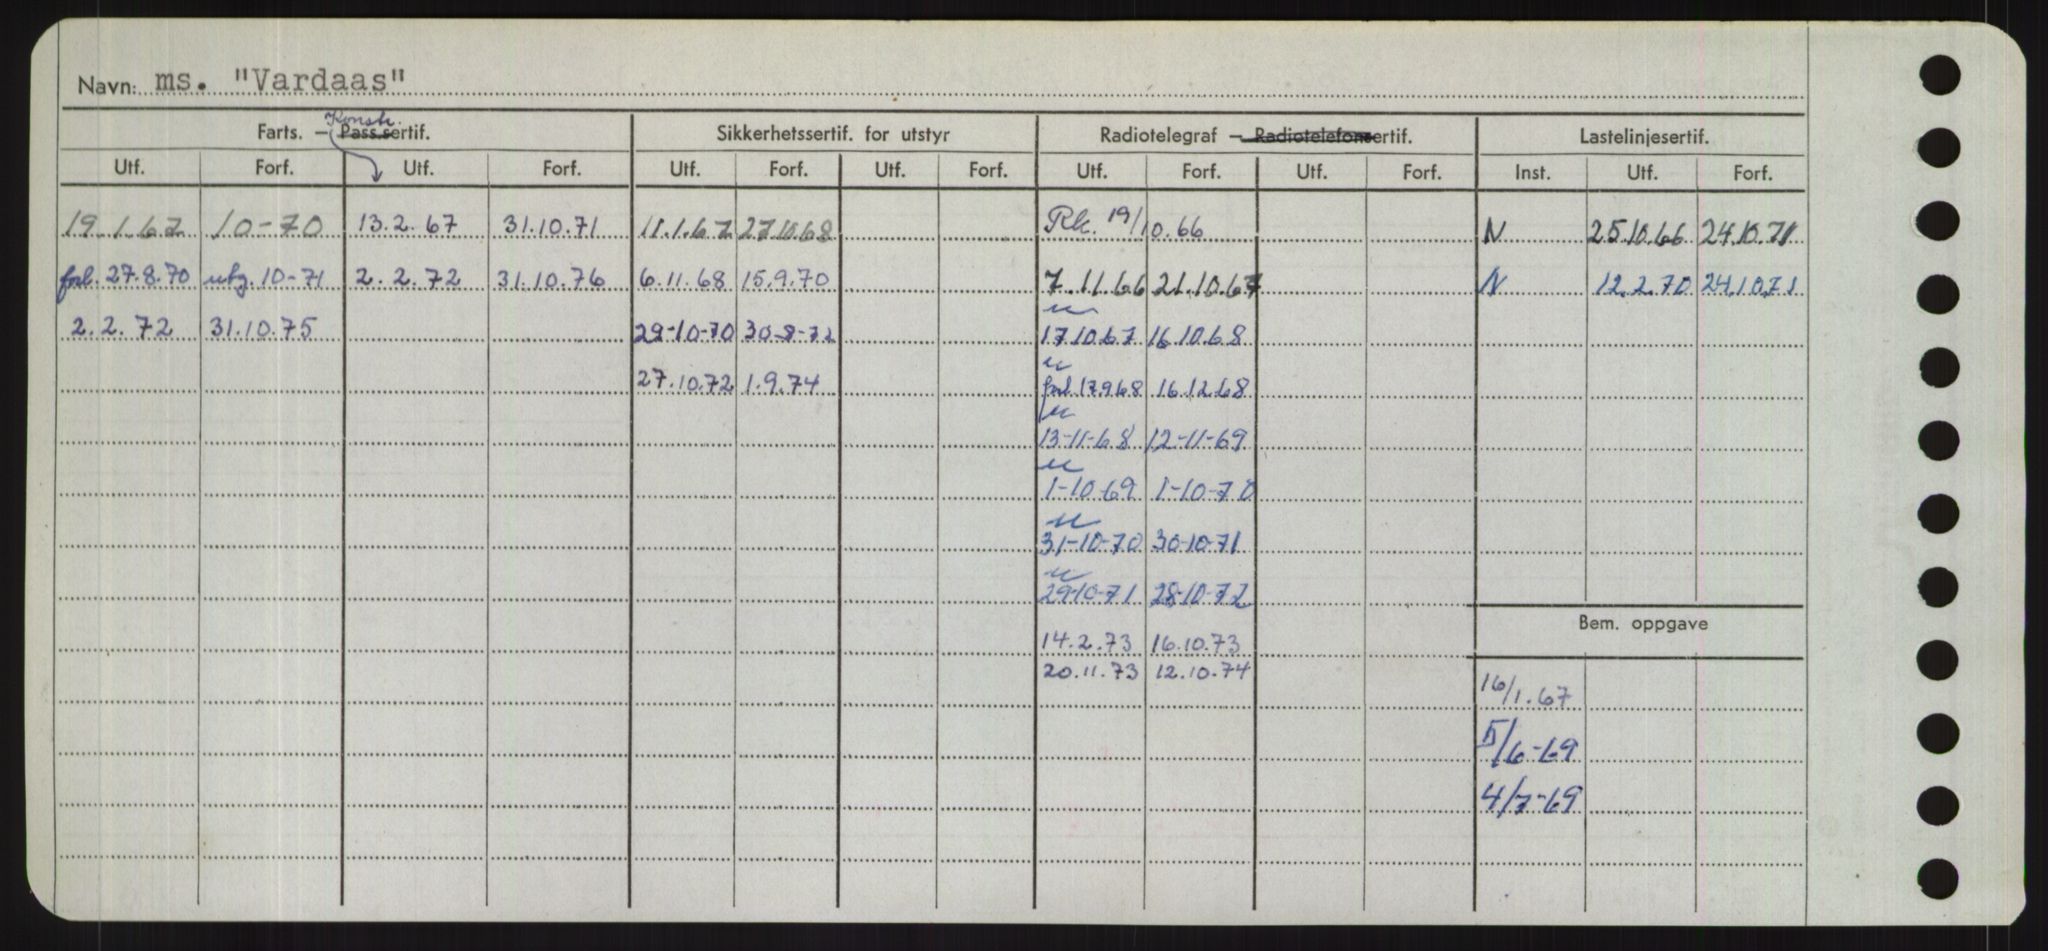 Navn: ms. "Vardaas"
Konstr.
Farts. – Pass.sertif. Sikkerhetssertif. for utstyr Radiotelegraf – Radiotelefonsertif. Lastelinjesertif.
Utf. Forf. Utf. Forf. Utf. Forf. Utf. Forf. Utf. Forf. Utf. Forf. Inst. Utf. Forf.
19.1.67 10-70 13.2.67 31.10.71 11.1.67 27.10.68 Rk. 19/10.66 N 25.10.66 24.10.71
forl. 27.8.70 utg. 10-71 2.2.72 31.10.76 6.11.68 15.9.70 7.11.66 21.10.67 N 12.2.70 24.10.71
2.2.72 31.10.75 29-10-70 30-8-72 17.10.67 16.10.68
27.10.72 1.9.74 forl. 17.9.68 16.12.68
13-11-68 12-11-69
1-10-69 1-10-70
31-10-70 30-10-71
29-10-71 28-10-72
Bem. oppgave
14.2.73 16.10.73
20.11.73 12.10.74
16/1.67
5/6-69
4/7-69